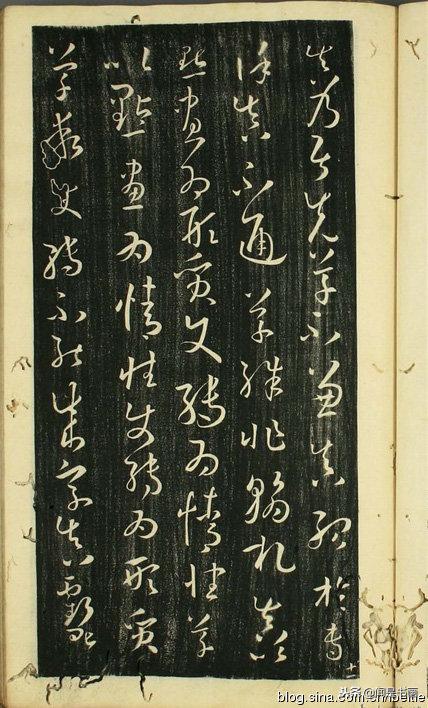 真乃居先草不兼真殆於專
謹真不通草殊非翰札真以
點畫為形質使轉為情性草
以點畫為情性使轉為形質
草乖使轉不能成字真虧
十一
blog.sina.com.cn/beitie